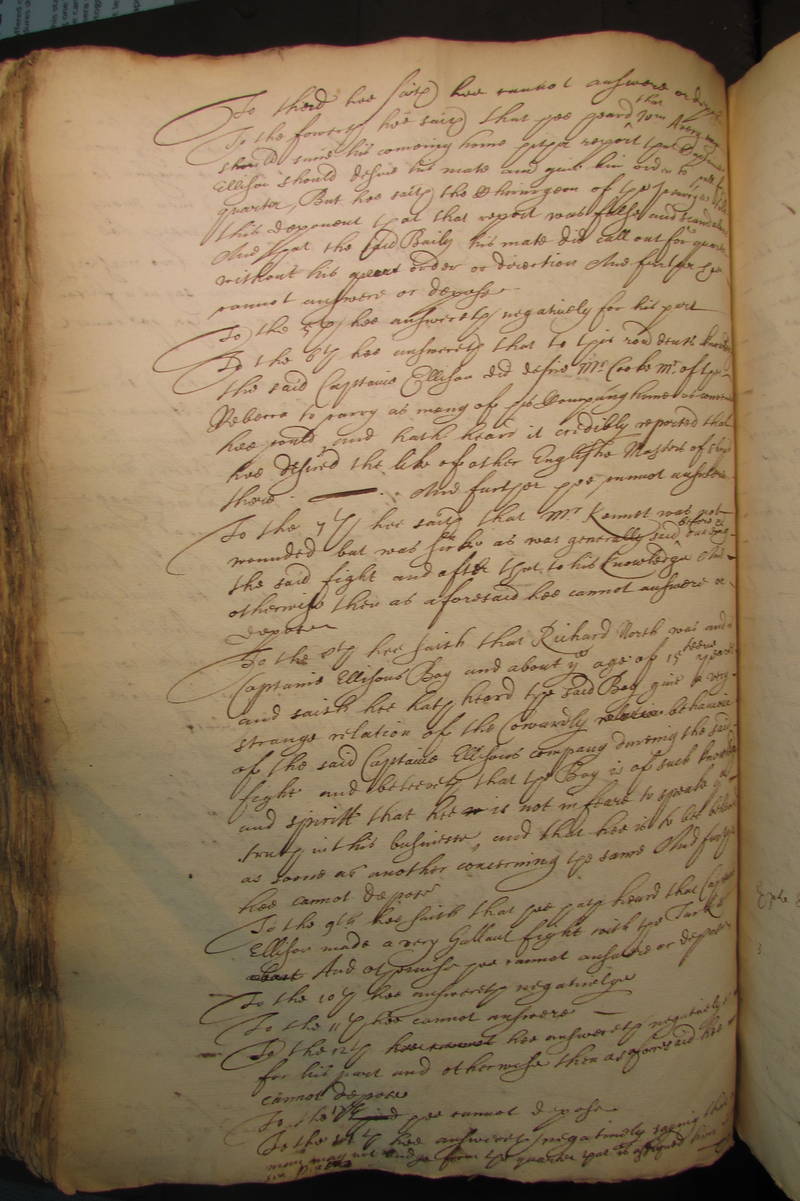 To the third hee saith hee cannot answere or depose
To the fowerth hee saith that hee heard that
should since his comeing home hither report that
Ellison should desire his mate and give him order to
quarter, But hee saith the Chirurgeon of the
this deponent that that report was false and scandalous
And that the said Baily his mate did call out for quarter
without his order or direction And further hee
cannot answere or depose
To the 5th hee answereth negatively for his part
To the 6th hee answereth that to this rendents knowledge
the said Captaine Ellison did desire Mr Cooke mr. of the
Rebecca to carry as many of his Company home as
hee could, and hath heard it credibly reported that
hee desired the like of other Englishe Masters of shipps
there. And further hee cannot answere
To the 7th hee saith that Mr Kennet was not
wounded but was sicke as was generally said before
the said fight and after that to his knowledge And
otherwise then as aforesaid hee cannot answere or
depose
To the 8th hee saith that Richard North was and is
Captaine Ellisons Boy and about ye age of 15 teene yeares
and saith hee hath heard the said Boy give a very
strange relation of the Cowardly behaviour
of the said Captaine Ellisons company during the said
fight and beleeveth that the Boy is of such knowledge
and spiritt that hee is not in feare to speake ye
truth in this businesse, and that hee is to bee beleeved
as soone as another concerning the same And further
hee cannot depose
To the 9th hee saith that hee hath heard that Captaine
Ellison made a very Gallant fight with the Turke
And otherwise hee cannot answere or depose
To the 10th hee answereth negatively
To the 11th hee cannot answere
To the 12th hee cannot hee answereth negatively
for his part and otherwise then as aforesaid hee
cannot depose
To the hee cannot depose
To the hee answereth negatively saying
man may not from the quarter that is assigned him